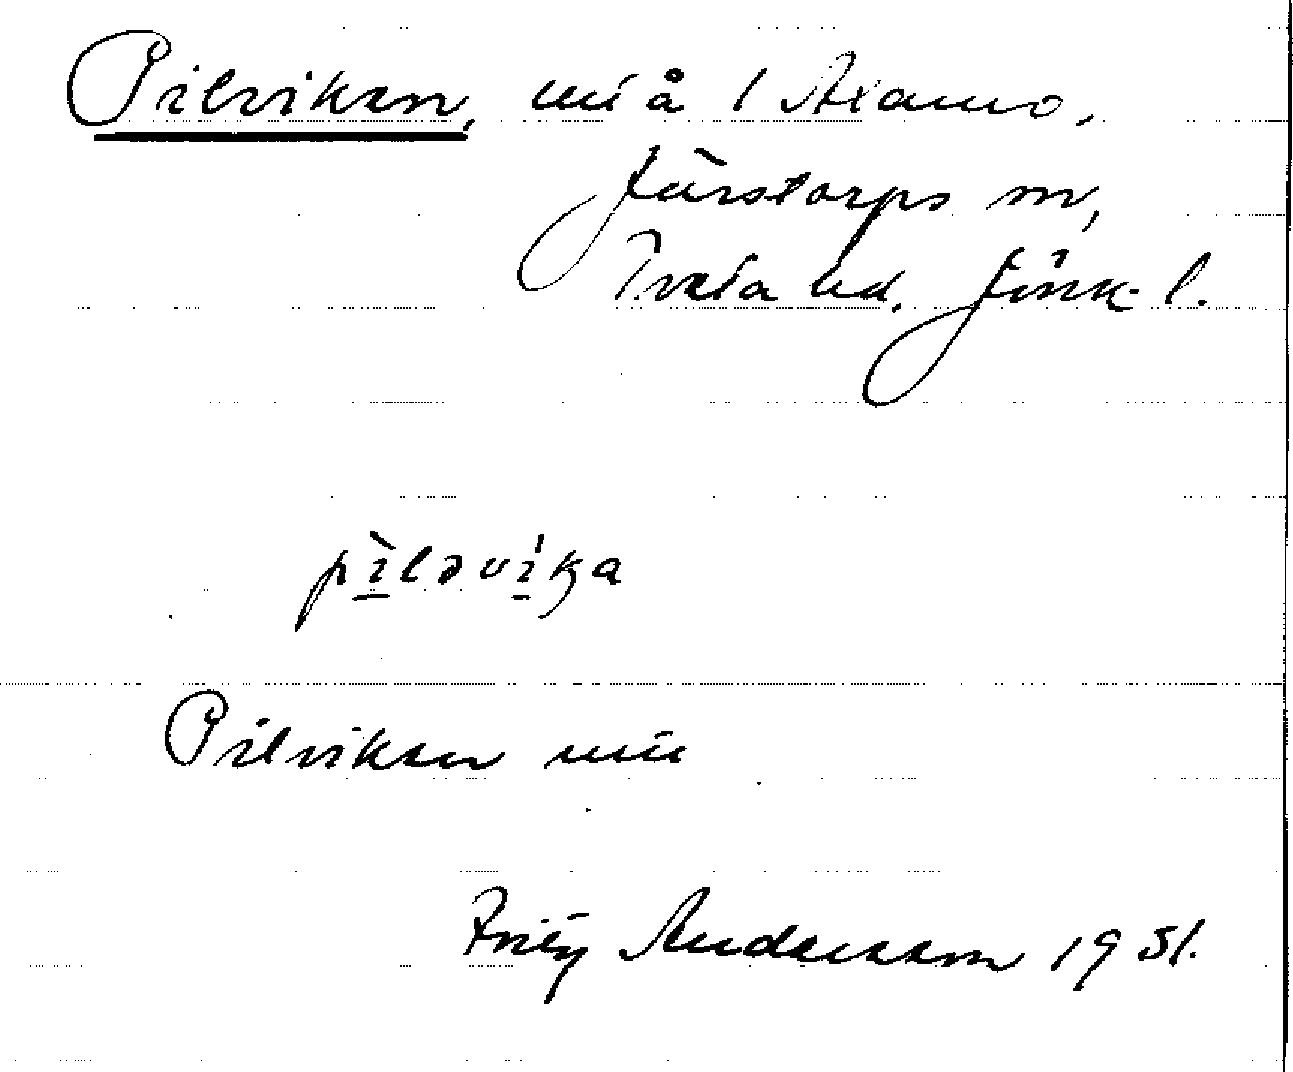 Pilviken, vid å i Axamo,
Järstorps sn,
Tveta hd. Jönk. l.
pìləvíka
Pilviken vid
Fritz Andersson 1931.